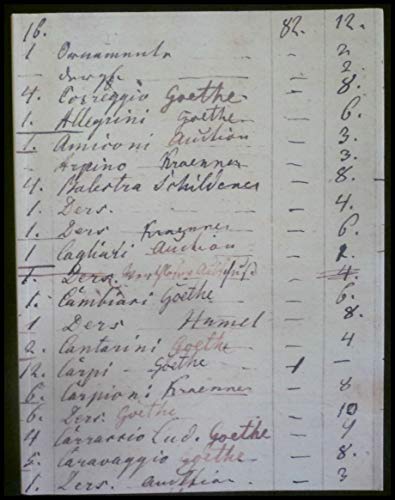 16. 82. 12.
1 Ornamente — — 2
— — — 2.
4. Correggio Goethe — — 8.
1. Allegrini Goethe — — 6.
1. Amiconi Auction — — 3.
— Arpino Kraenner — — 3.
4. Balestra Schildener — — 8.
1. Ders. — — 4.
1. Ders Kraenner — — 6.
1 Cagliari Auction — —
1. Ders. — 4.
1. Cambiasi Goethe — — 6.
1 Ders Hamel — — 8.
2. Cantarini Goethe — — 4
12. Carpi — Goethe — 1 —
6. Carpioni Kraenner — — 8
6. Ders. Goethe — — 10
4 Carraccio Lud. Goethe — — 4
5. Caravaggio Goethe — — 8.
1. Ders. — Auction — — 3